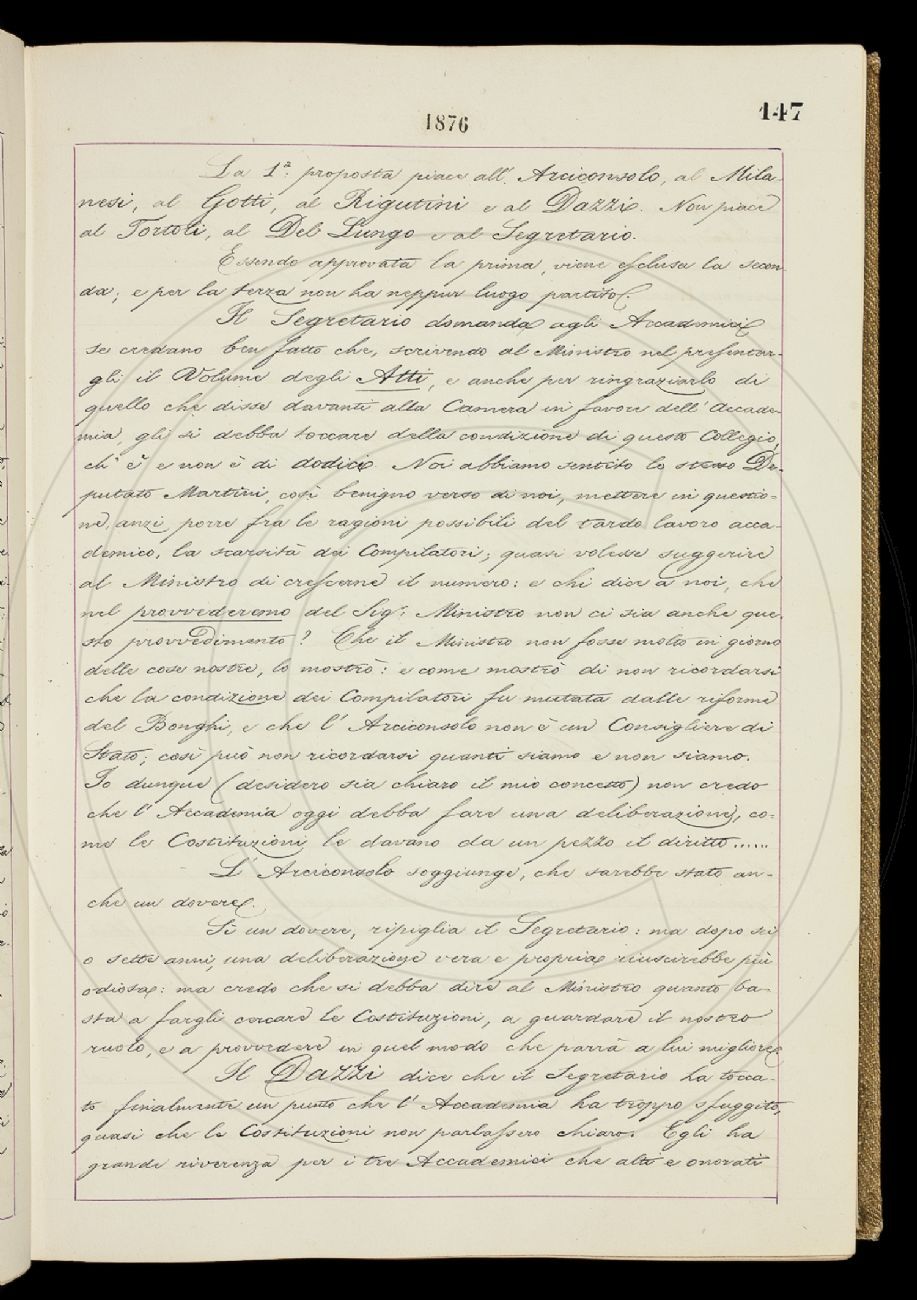 1876
147
La 1ª: proposta piace all'Arciconsolo, al Mila-
nesi, al Gotti, al Rigutini e al Dazzi. Non piace
al Tortoli, al Del Lungo e al Segretario.
Essendo approvata la prima, viene esclusa la secon-
da; e per la terza non ha neppur luogo partito.
Il Segretario domanda agli Accademici
se credano ben fatto che, scrivendo al Ministro nel presentar-
gli il Volume degli Atti, e anche per ringraziarlo di
quello che disse davanti alla Camera in favore dell'Accade-
mia, gli si debba toccare della condizione di questo Collegio,
ch'è e non è di dodici. Noi abbiamo sentito lo stesso De-
putato Martini, così benigno verso di noi, mettere in questio-
ne, anzi porre fra le ragioni possibili del tardo lavoro acca-
demico, la scarsità dei Compilatori; quasi volesse suggerire
al Ministro di crescerne il numero: e chi dice a noi, che
nel provvederemo del Sig: Ministro non ci sia anche que-
sto provvedimento? Che il Ministro non fosse molto in giorno
delle cose nostre, lo mostrò: e come mostrò di non ricordarsi
che la condizione dei Compilatori fu mutata dalle riforme
del Bonghi, e che l'Arciconsolo non è un Consigliere di
Stato; così può non ricordarsi quanti siamo e non siamo.
Io dunque (desidero sia chiaro il mio concetto) non credo
che l'Accademia oggi debba fare una deliberazione, co-
me le Costituzioni le davano da un pezzo il diritto......
L'Arciconsolo soggiunge, che sarebbe stato an-
che un dovere.
Sì un dovere, ripiglia il Segretario: ma dopo sei
o sette anni, una deliberazione vera e propria riuscirebbe più
odiosa: ma credo che si debba dire al Ministro quanto ba-
sta a fargli cercare le Costituzioni, a guardare il nostro
ruolo, e a provvedere in quel modo che parrà a lui migliore.
Il Dazzi dice che il Segretario ha tocca-
to finalmente un punto che l'Accademia ha troppo sfuggito,
quasi che le Costituzioni non parlassero chiaro. Egli ha
grande riverenza per i tre Accademici che alti e onorati